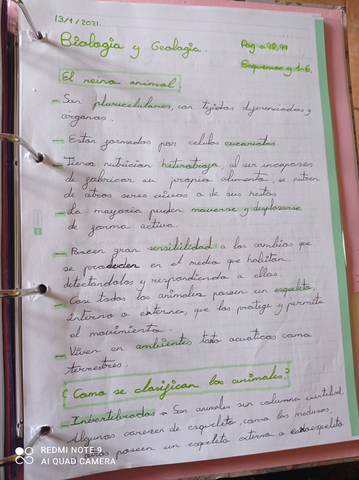 13/1/2021.
Biología y Geología
Pág = 98, 99
Esquemas y 1-6.
El reino animal
- Son pluricelulares, con tejidos diferenciados y
organos.
- Están formados por celulas eucariotas
- Tienen nutrician heterotroga, al ser incapaces
de fabricar su propio alimento, se nutren
de otros seres vivos o de sus restos
- La mayoria pueden moverse y desplazarse
de forma activa.
- Poseen gran sensibilidad a los cambios que
se producen en el medio que habitan
detectandolos y respondiendo a ellos
- Casi todos los animales poseen un esqueleto,
interno o externo, que los protege y permite
el movimiento.
- Viven en ambientes tanto acuaticos como
terrestres.
¿Como se clasifican los animales?
- Invertebrados → Son animales sin columna vertebral
Algunos carecen de esqueleto, como las medusas,
poseen un esqueleto externo o exoesqueleto
REDMI NOTE 9
AI QUAD CAMERA